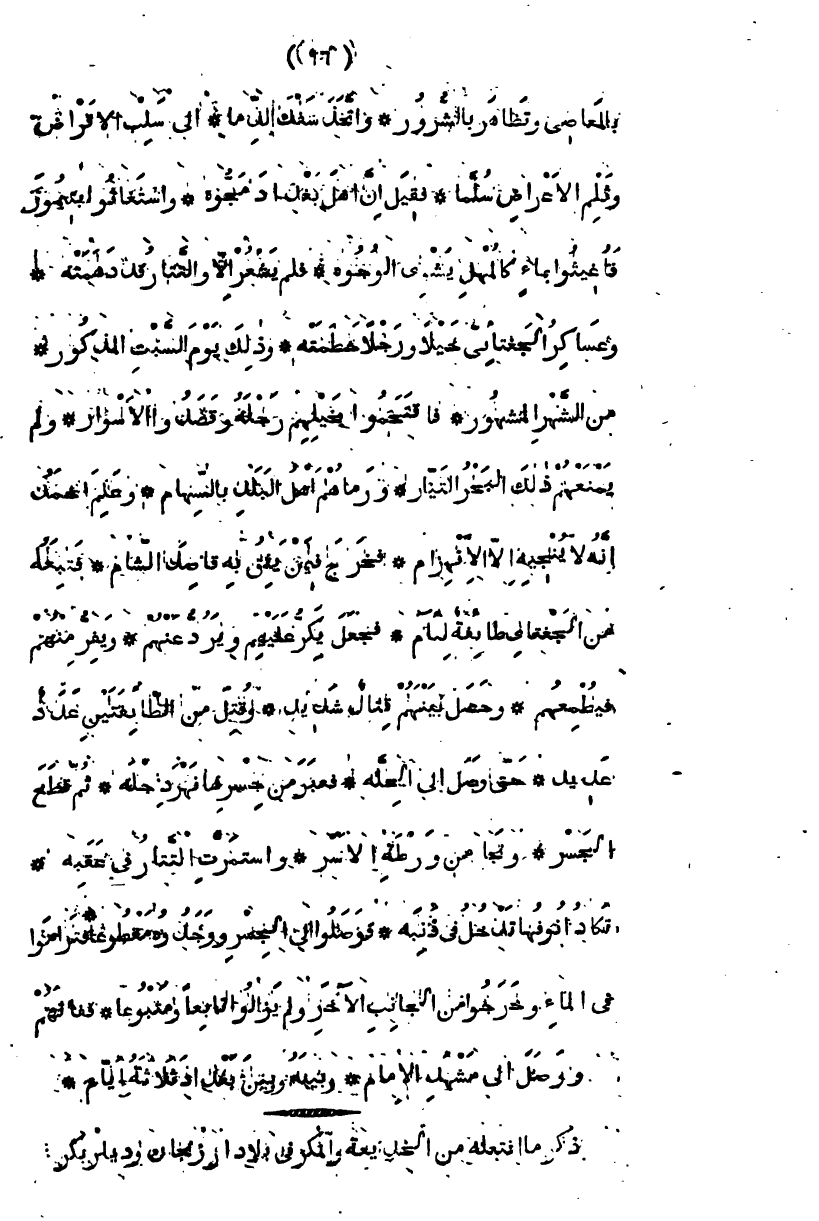 ((٩٦))
بالمَعاصى وتَظاهَر بالشُّرُور * وَاتَّخَذَ سَفْكَ الدِّما * الى سَلِبْ الاقْرا
وثَلْمِ الاَعْراضِ سُلَّما * فقِيلَ اِنَّ اهلَ بَغْداد مَجُّوهُ * واسْتَغاثُوا
فَاُغِيثُوا بماءٍ كالمُهْلِ يَشْوِى الوُجُوه * فلم يَشْعُرْ اِلّا والتَّتارُ قد دَهَمَتْه *
وعَساكِرُ الجغتاىْ خَيْلًا ورَجْلًا حَطَمَتْه * وذٰلِكَ يَوْمَ السَّبْتِ المذكور *
من الشَّهْرِ المشهُور * فاقتَحَمُوا بخَيْلِهِم دَجْلَةَ وقَصَدُوا الاَسْوار * ولم
يَمْنَعْهُم ذٰلك البَحْرُ التَيّار * وَرَماهُم اَهلُ البَلَدِ بالسِّهام * وعَلِمَ احمَدُ
اِنَّهُ لا يُنْجِيهِ اِلّا الاِنْهِزام * فخَرَجَ فيمَنْ يَثِقُ بِه قاصِدَ الشّام * فتَبِعَهُ
من الجَغتاى طايِفةٌ لِئام * فجَعَلَ يَكُرُّ عَلَيْهِم ويَرْدَعُهُم * ويَفِرُّ مِنْهُم
فيُطْمِعُهم * وحَصَلَ بَيْنَهُم قِتالٌ شَدِيد * وقُتِلَ مِنَ الطّايِفَتَيْنِ عَدَدٌ
عَدِيد * حَتّى وصَلَ اِلى الحِلَّه * فعَبَرَ من جِسْرِها نَهْرَ دِجْلَه * ثُمَّ قَطَعَ
الجِسْر * ونَجَا من وَرْطَةِ الاَسْر * واستَمَرَّتِ التَّتارُ فى عَقِبِه *
تكادُ اُنُوفُها تَدْخُلُ فى ذَنَبِه * فوَصَلُوا الى الجِسْرِ ووَجَدُوهُ مَقطُوعا * فتَرامَوْا
فى الماءِ وخَرَجُوا من الجانِبِ الآخَر ولم يَزالُوا تابِعاً ومَتْبُوعا * ففاتَهُمْ
ووَصَلَ الى مَشْهَدِ الاِمام * وبَيْنَه وبيْنَ بَغْدادَ ثَلاثَةُ اَيّام *
ذكر ما افتعله من الخديعة والمكر فى بلاد ارزنجان وديار بكر